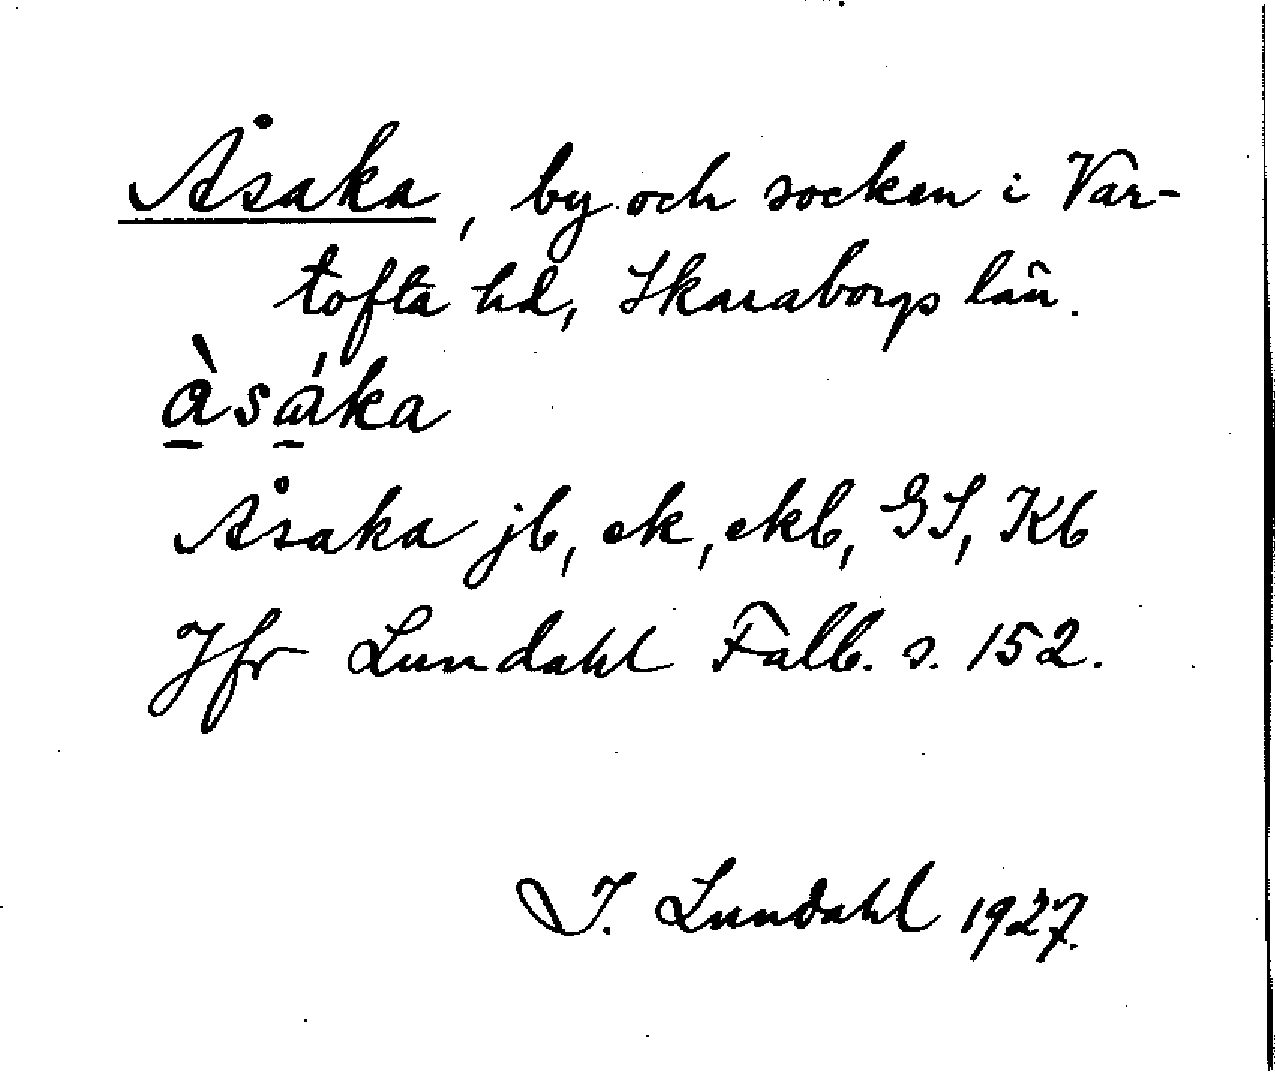 Åsaka, by och socken i Var-
tofta hd, Skaraborgs län.
à̱sá̱ka
Åsaka jb, ek, ekb, GS, Kb
Jfr Lundahl Falb. s. 152.
I. Lundahl 1927.